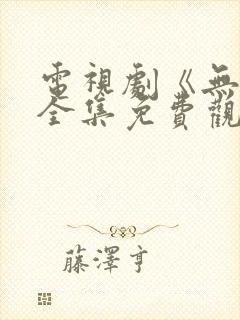 電視劇《無
全集免費觀
藤澤亨